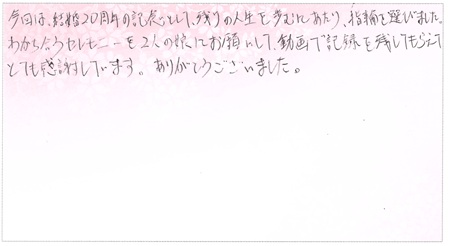 今回は、結婚20周年の記念として、残りの人生を歩むにあたり、指輪を選びました。
わかち合うセレモニーを2人の娘にお願いして、動画で記録を残してもらえて
とても感謝しています。ありがとうございました。